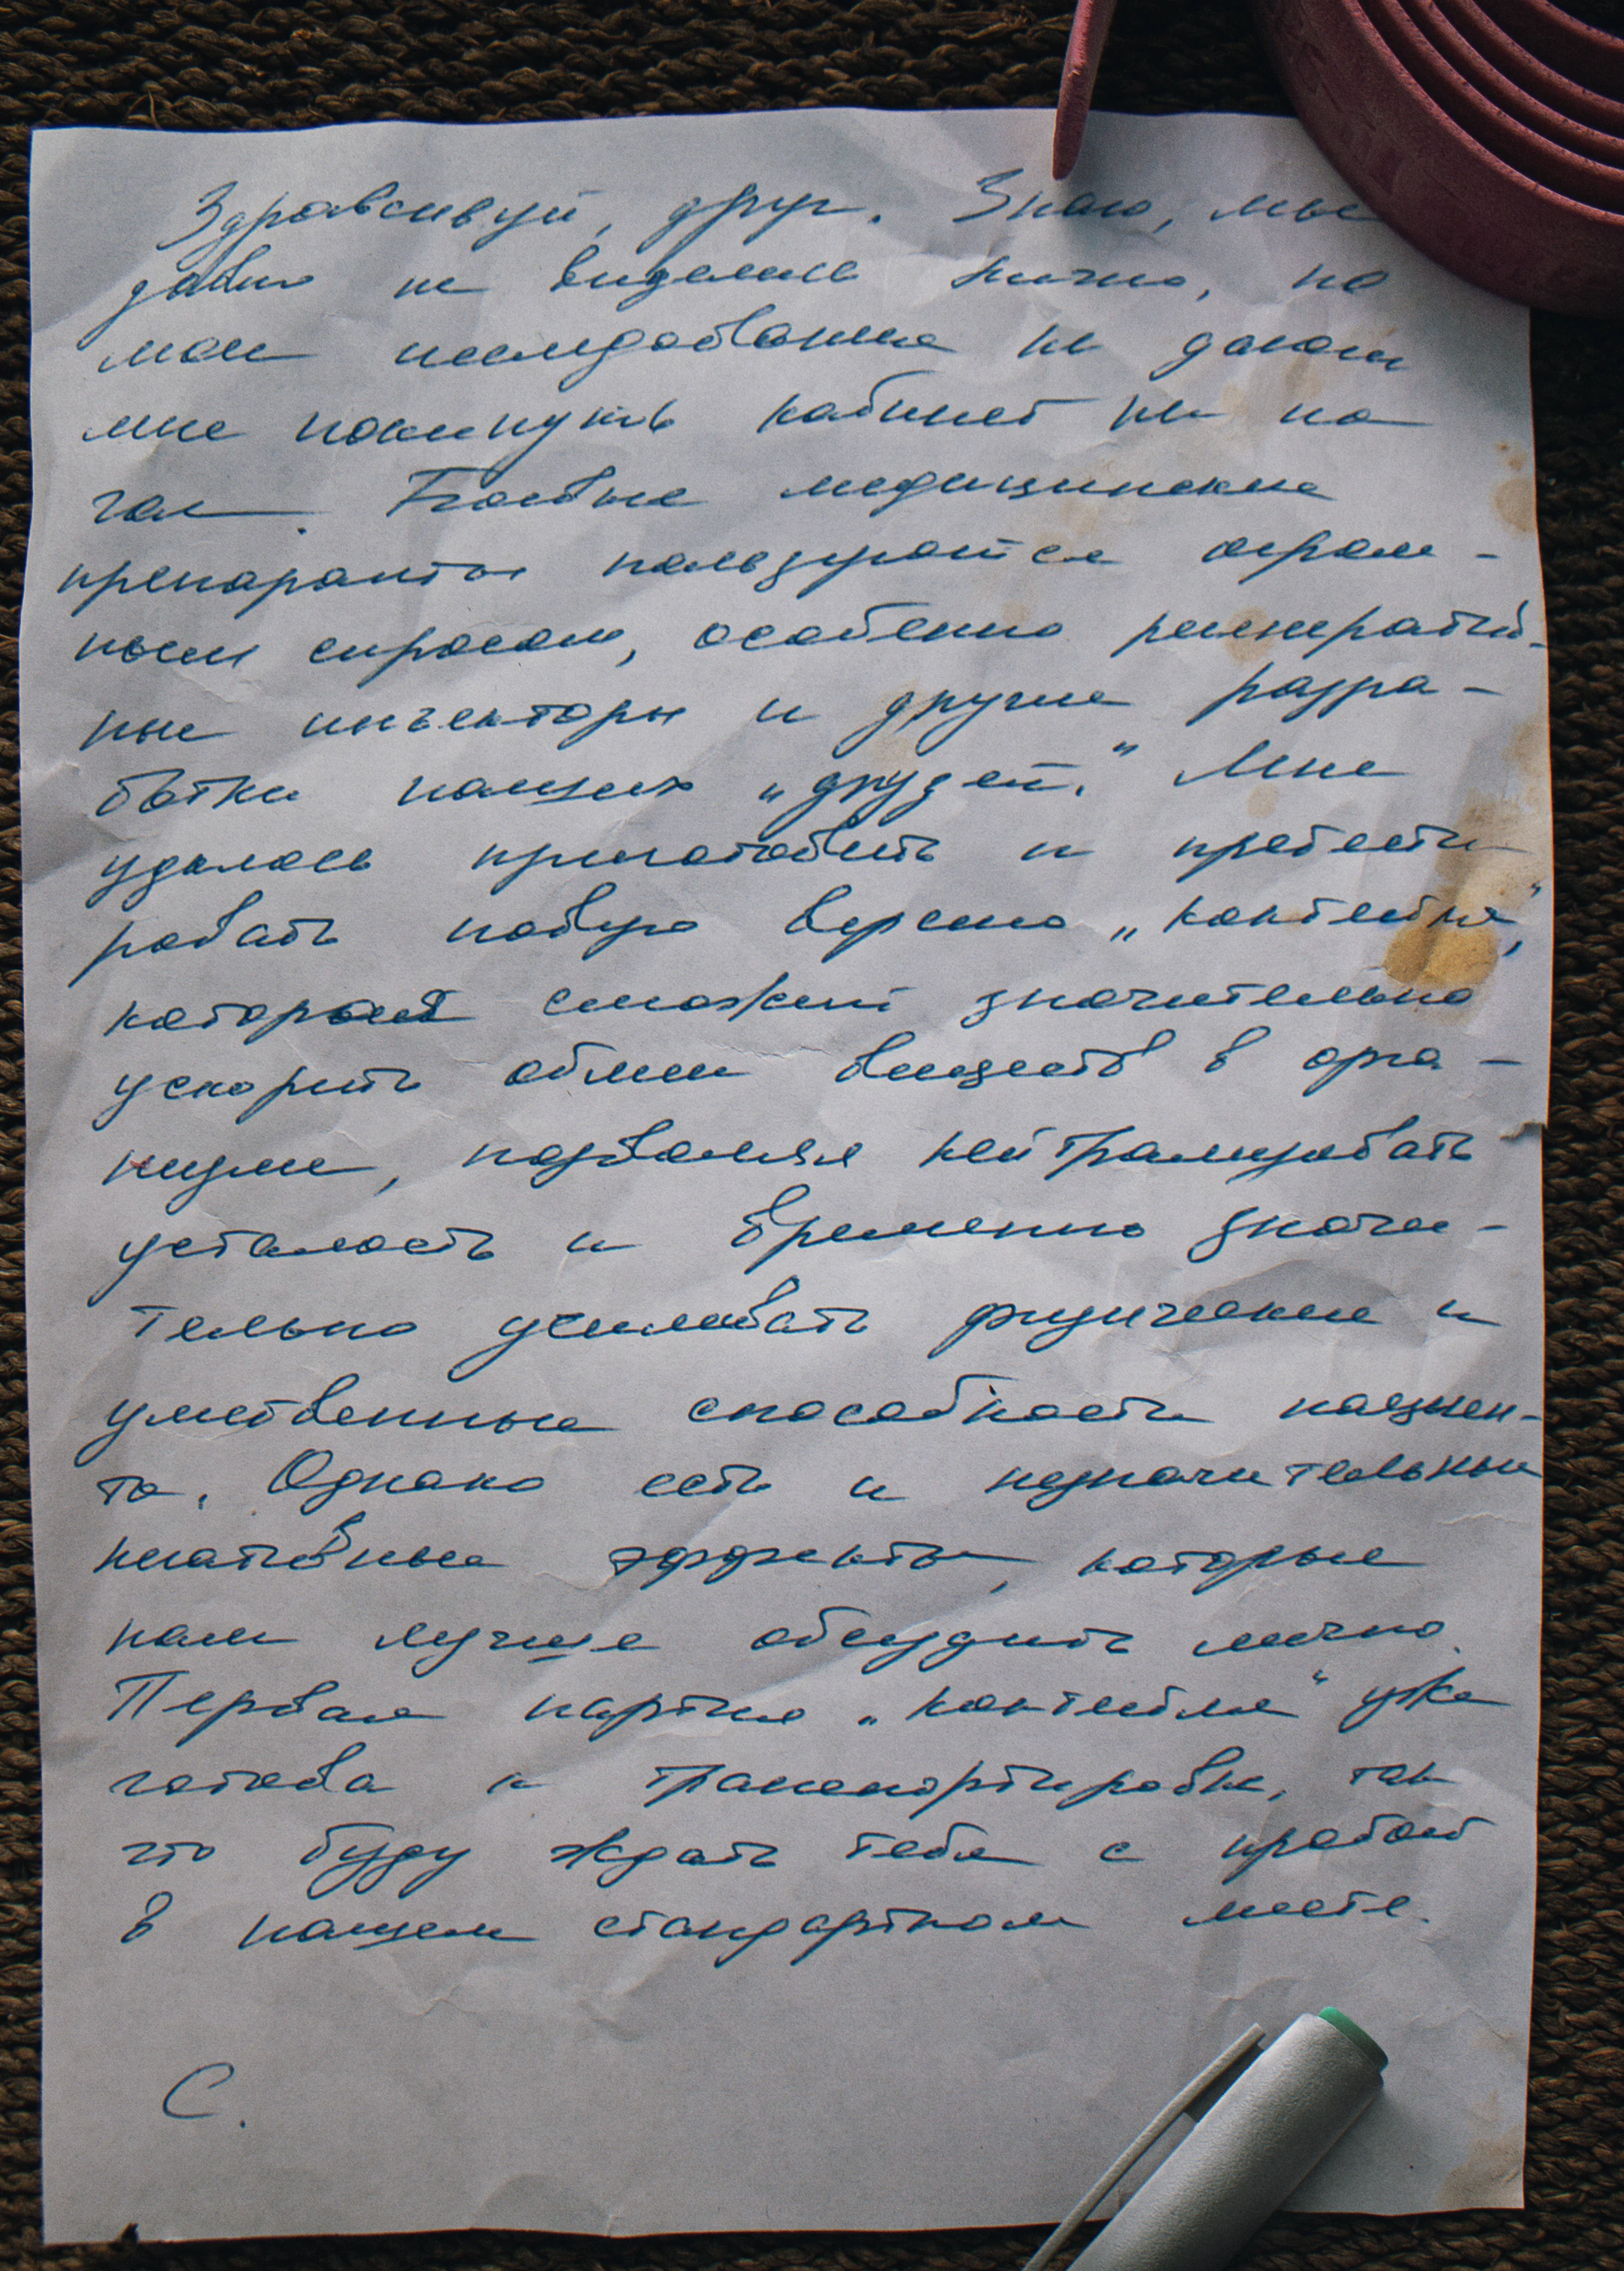 Здравствуй, друг. Знаю, мы
давно не виделись лично, но
мои исследования не дают
мне покинуть кабинет ни на
час. Боевые медицинские
препараты пользуются огром-
ным спросом, особенно регенератив-
ные инъекторы и другие разра-
ботки наших „друзей“. Мне
удалось приготовить и протести
ровать новую версию „коктейля“,
которая сможет значительно
ускорить обмен веществ в орга-
низме, позволяя нейтрализовать
усталость и временно значи-
тельно усиливать физические и
умственные способности пациен-
та. Однако есть и незначительные
негативные эффекты, которые
нам лучше обсудить лично.
Первая партия „коктейля“ уже
готова к транспортировке, так
что буду ждать тебя с
в нашем стандартном месте.
С.